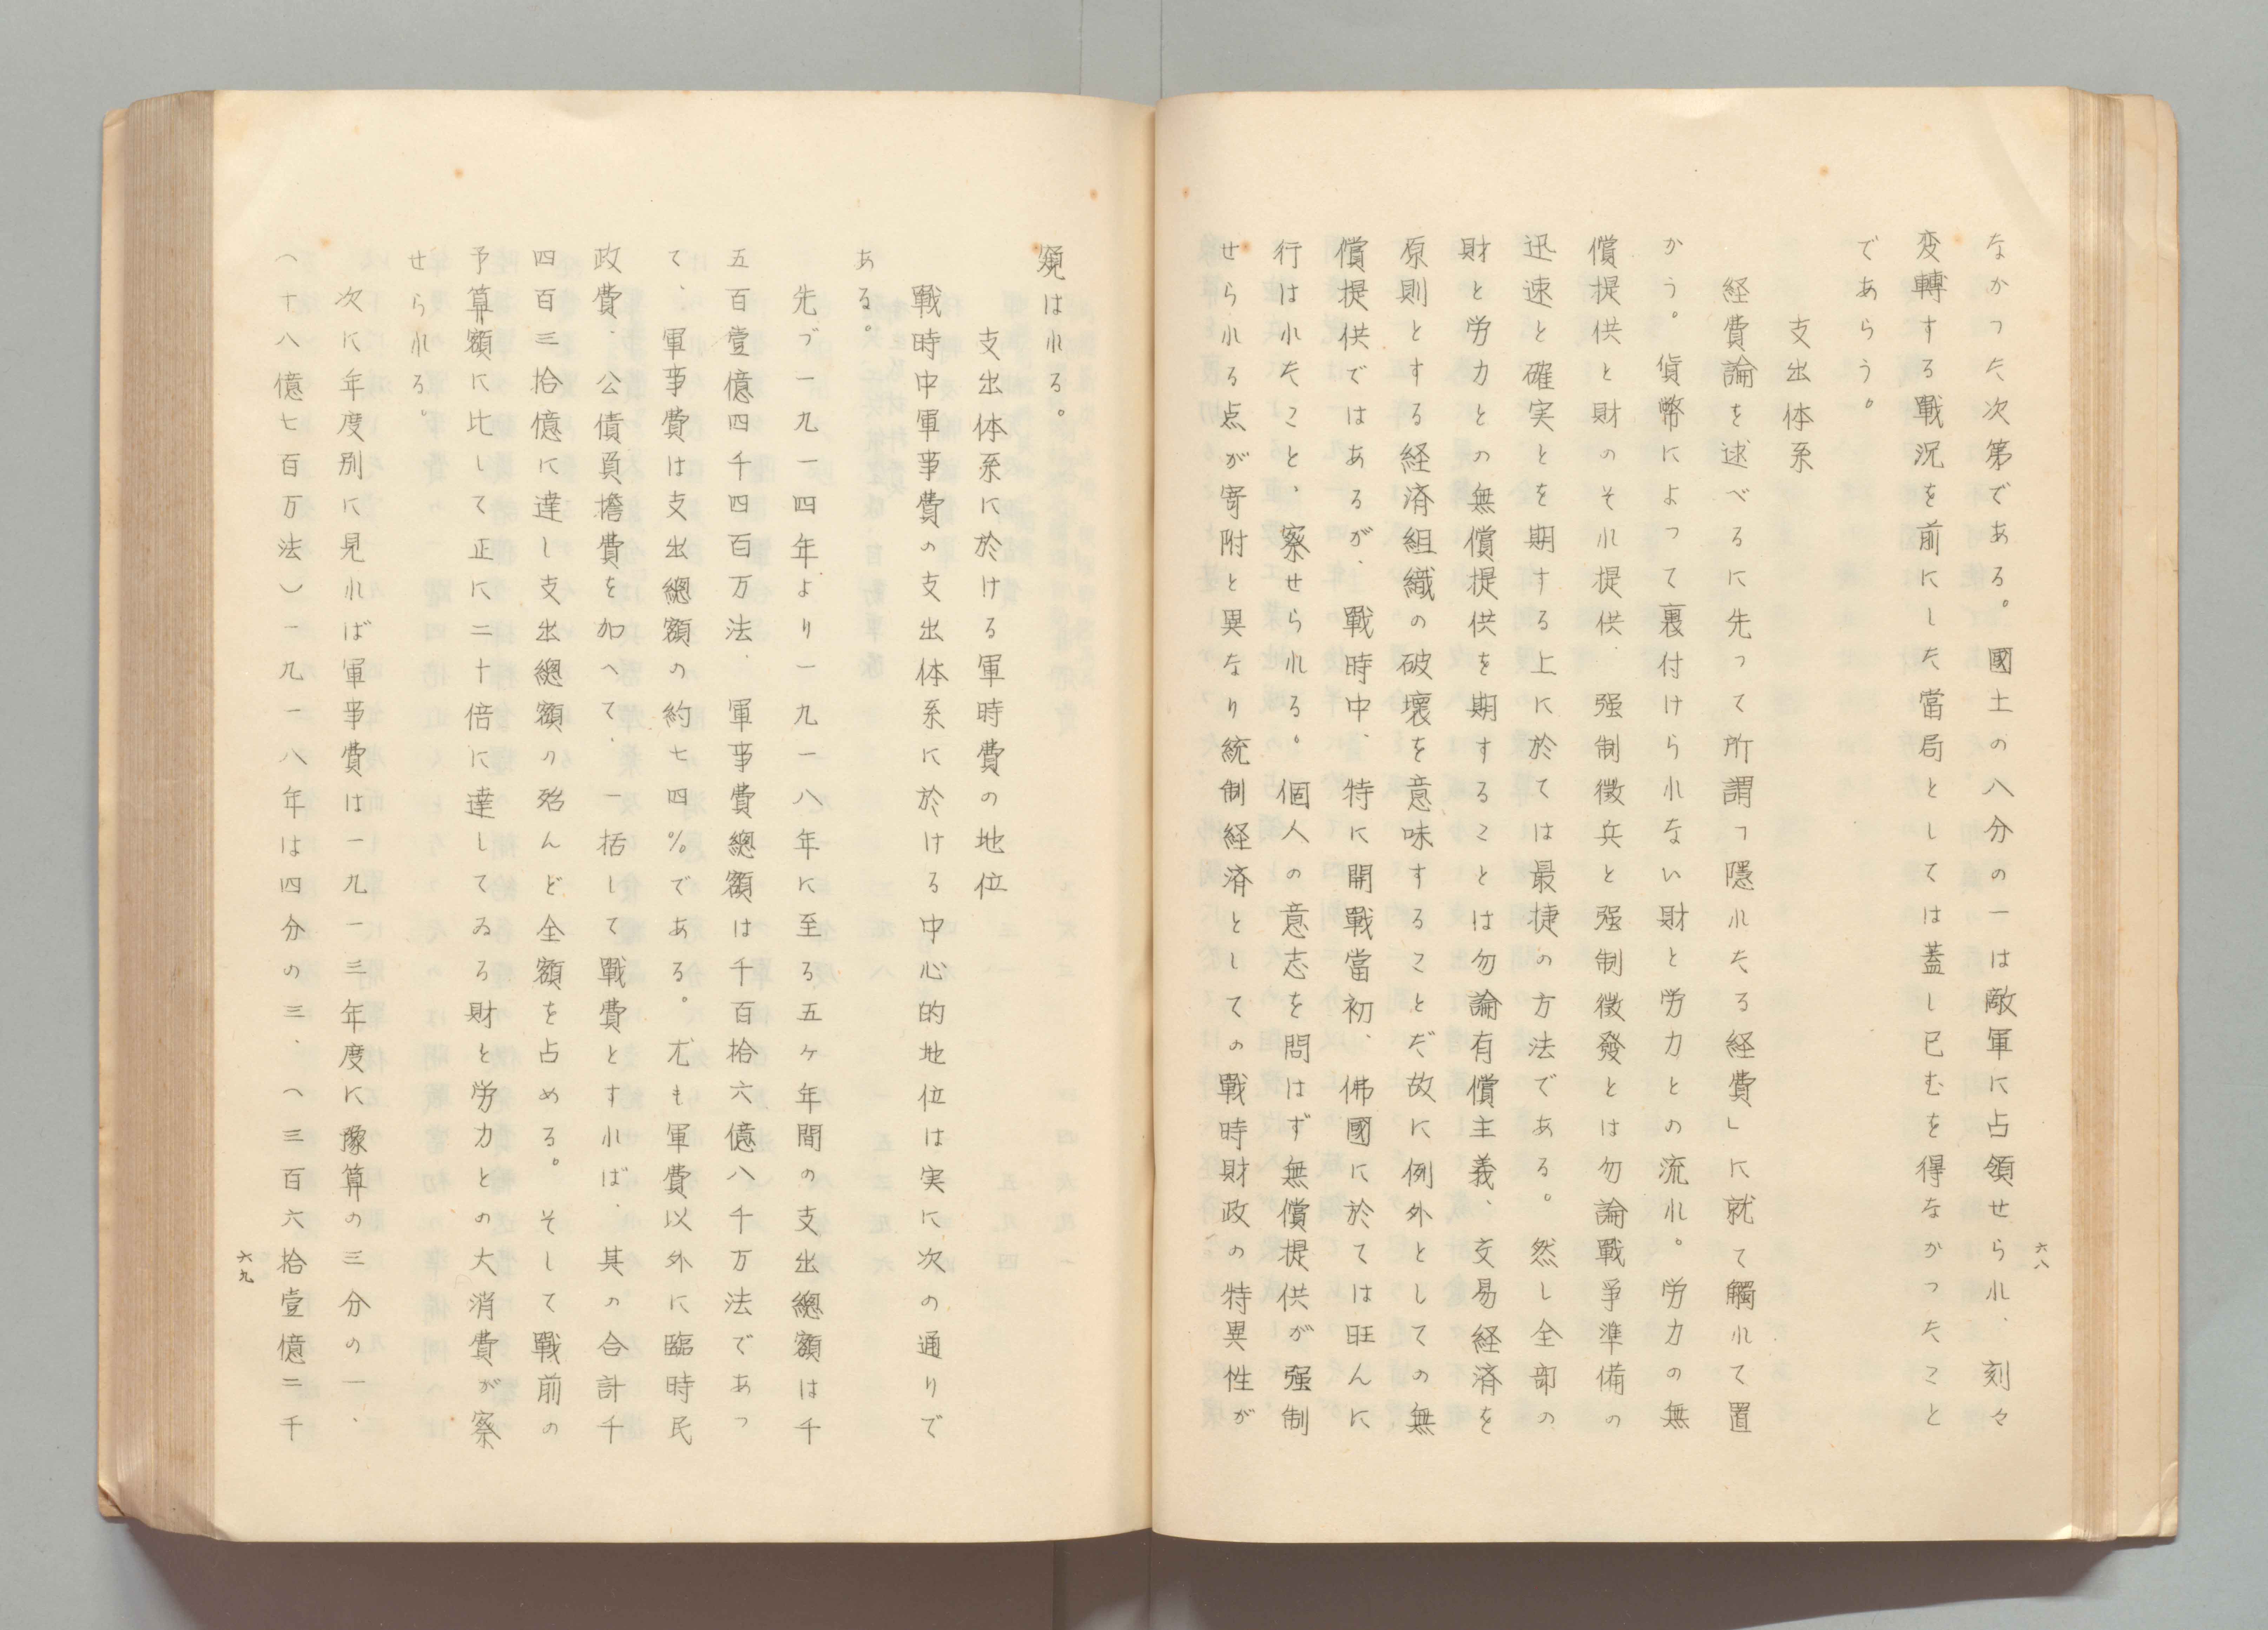 六八
なかつた次第である。國土の八分の一は敵軍に占領せられ、刻々
変轉する戰況を前にした當局としては蓋し已むを得なかつたこと
であらう。
支出体系
経費論を逑べるに先つて所謂「隱れたる経費」に就て觸れて置
かう。貨幣によつて裏付けられない財と労力との流れ。労力の無
償提供と財のそれ提供、强制徴兵と强制徴發とは勿論戰爭準備の
迅速と確実とを期する上に於ては最捷の方法である。然し全部の
財と労力との無償提供を期することは勿論有償主義、交易経済を
原則とする経済組織の破壞を意味することだ故に例外としての無
償提供ではあるが、戰時中、特に開戰當初、佛國に於ては旺んに
行はれたこと、察せられる。個人の意志を問はず無償提供が强制
せられる点が寄附と異なり統制経済としての戰時財政の特異性が
窺はれる。
支出体系に於ける軍時費の地位
戰時中軍事費の支出体系に於ける中心的地位は実に次の通りで
ある。
先づ一九一四年より一九一八年に至る五ヶ年間の支出總額は千
五百壹億四千四百万法、軍事費總額は千百拾六億八千万法であつ
て、軍事費は支出總額の約七四%である。尤も軍費以外に臨時民
政費、公債負擔費を加へて、一括して戰費とすれば、其の合計千
四百三拾億に達し支出總額の殆んど全額を占める。そして戰前の
予算額に比して正に二十倍に達してゐる財と労力との大消費が察
せられる。
次に年度別に見れば軍事費は一九一三年度に豫算の三分の一、
(十八億七百万法)一九一八年は四分の三、(三百六拾壹億二千
六九